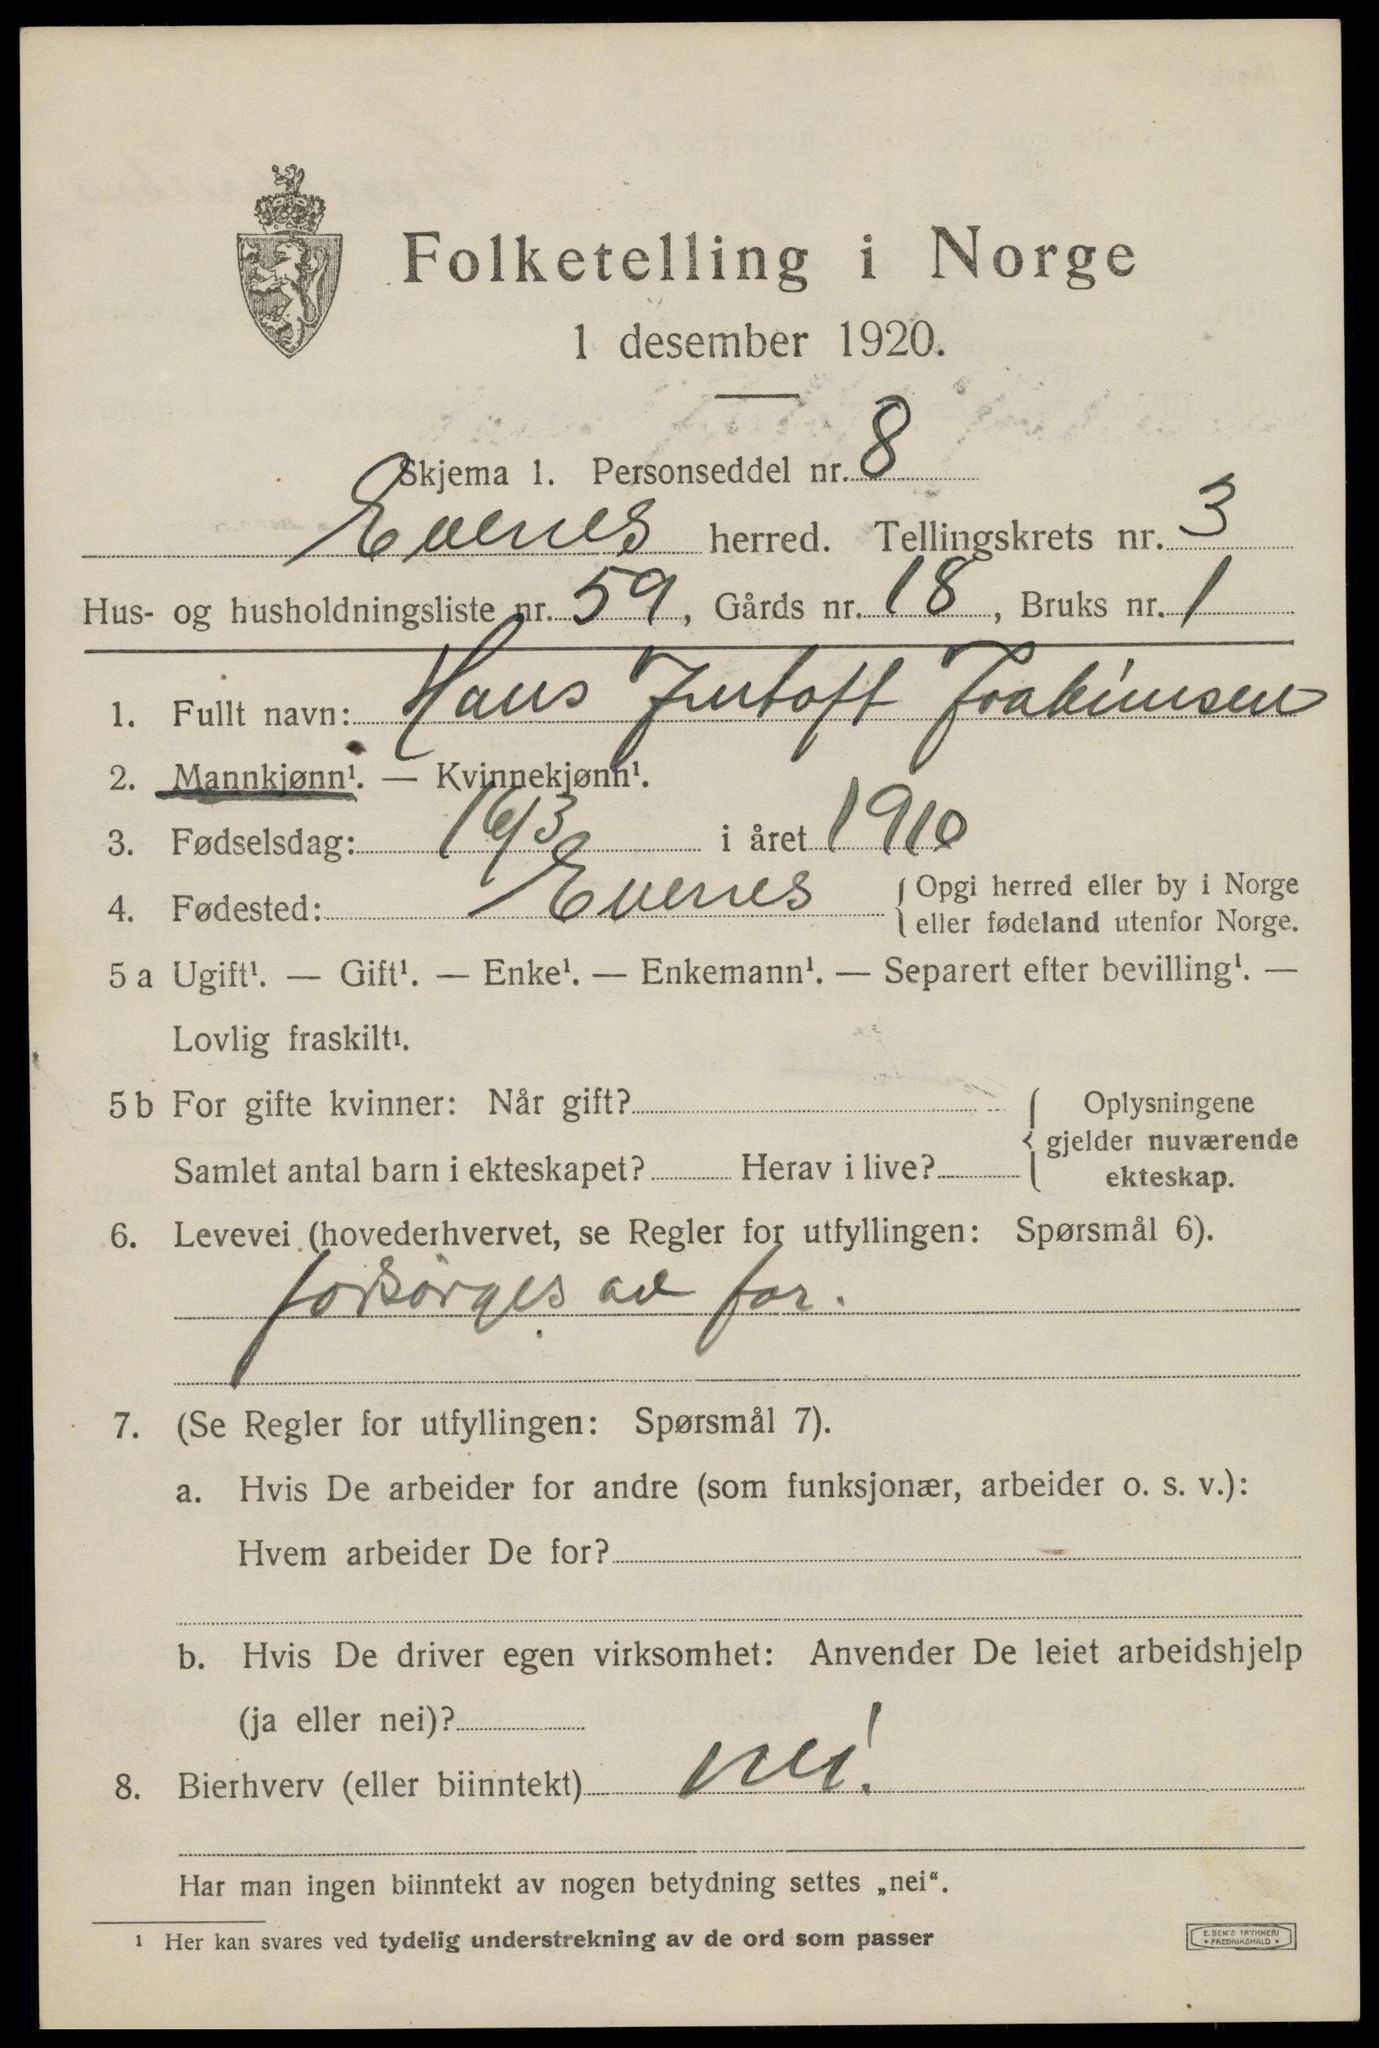 Folketelling i Norge
1 desember 1920.
Skjema 1. Personseddel nr. 8
Evenes herred. Tellingskrets nr. 3
Hus- og husholdningsliste nr. 59, Gårds nr. 18, Bruks nr. 1
1. Fullt navn: Hans Joakimsen
2. Mannkjønn¹. — Kvinnekjønn¹.
3. Fødselsdag: 16/3 i året 1910
4. Fødested: Evenes { Opgi herred eller by i Norge
eller fødeland utenfor Norge.
5 a Ugift¹. — Gift¹. — Enke¹. — Enkemann¹. — Separert efter bevilling¹. —
Lovlig fraskilt¹.
5 b For gifte kvinner: Når gift? { Oplysningene
gjelder nuværende
Samlet antal barn i ekteskapet? Herav i live? ekteskap.
6. Levevei (hovederhvervet, se Regler for utfyllingen: Spørsmål 6).
forsørges av far.
7. (Se Regler for utfyllingen: Spørsmål 7).
a. Hvis De arbeider for andre (som funksjonær, arbeider o. s. v.):
Hvem arbeider De for?
b. Hvis De driver egen virksomhet: Anvender De leiet arbeidshjelp
(ja eller nei)?
8. Bierhverv (eller biinntekt) nei.
Har man ingen biinntekt av nogen betydning settes „nei“.
¹ Her kan svares ved tydelig understrekning av de ord som passer
E. SEM'S TRYKKERI
* FREDRIKSHALD *